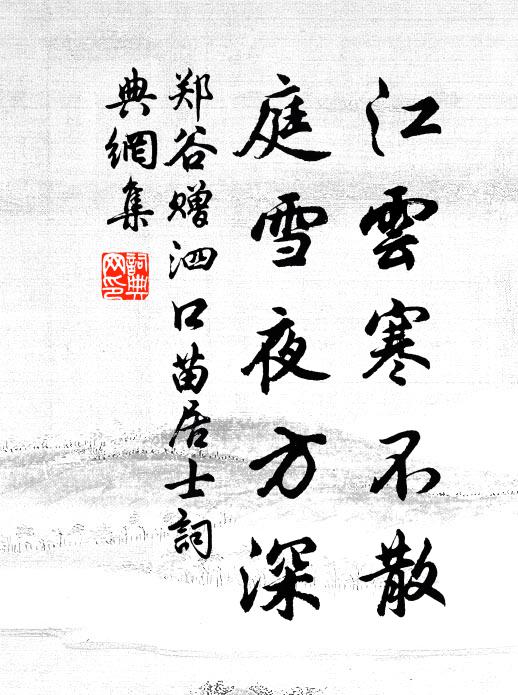 江雲寒不散
庭雪夜方深
郑谷赠泗口苗居士詞
典網集
詞典
网印